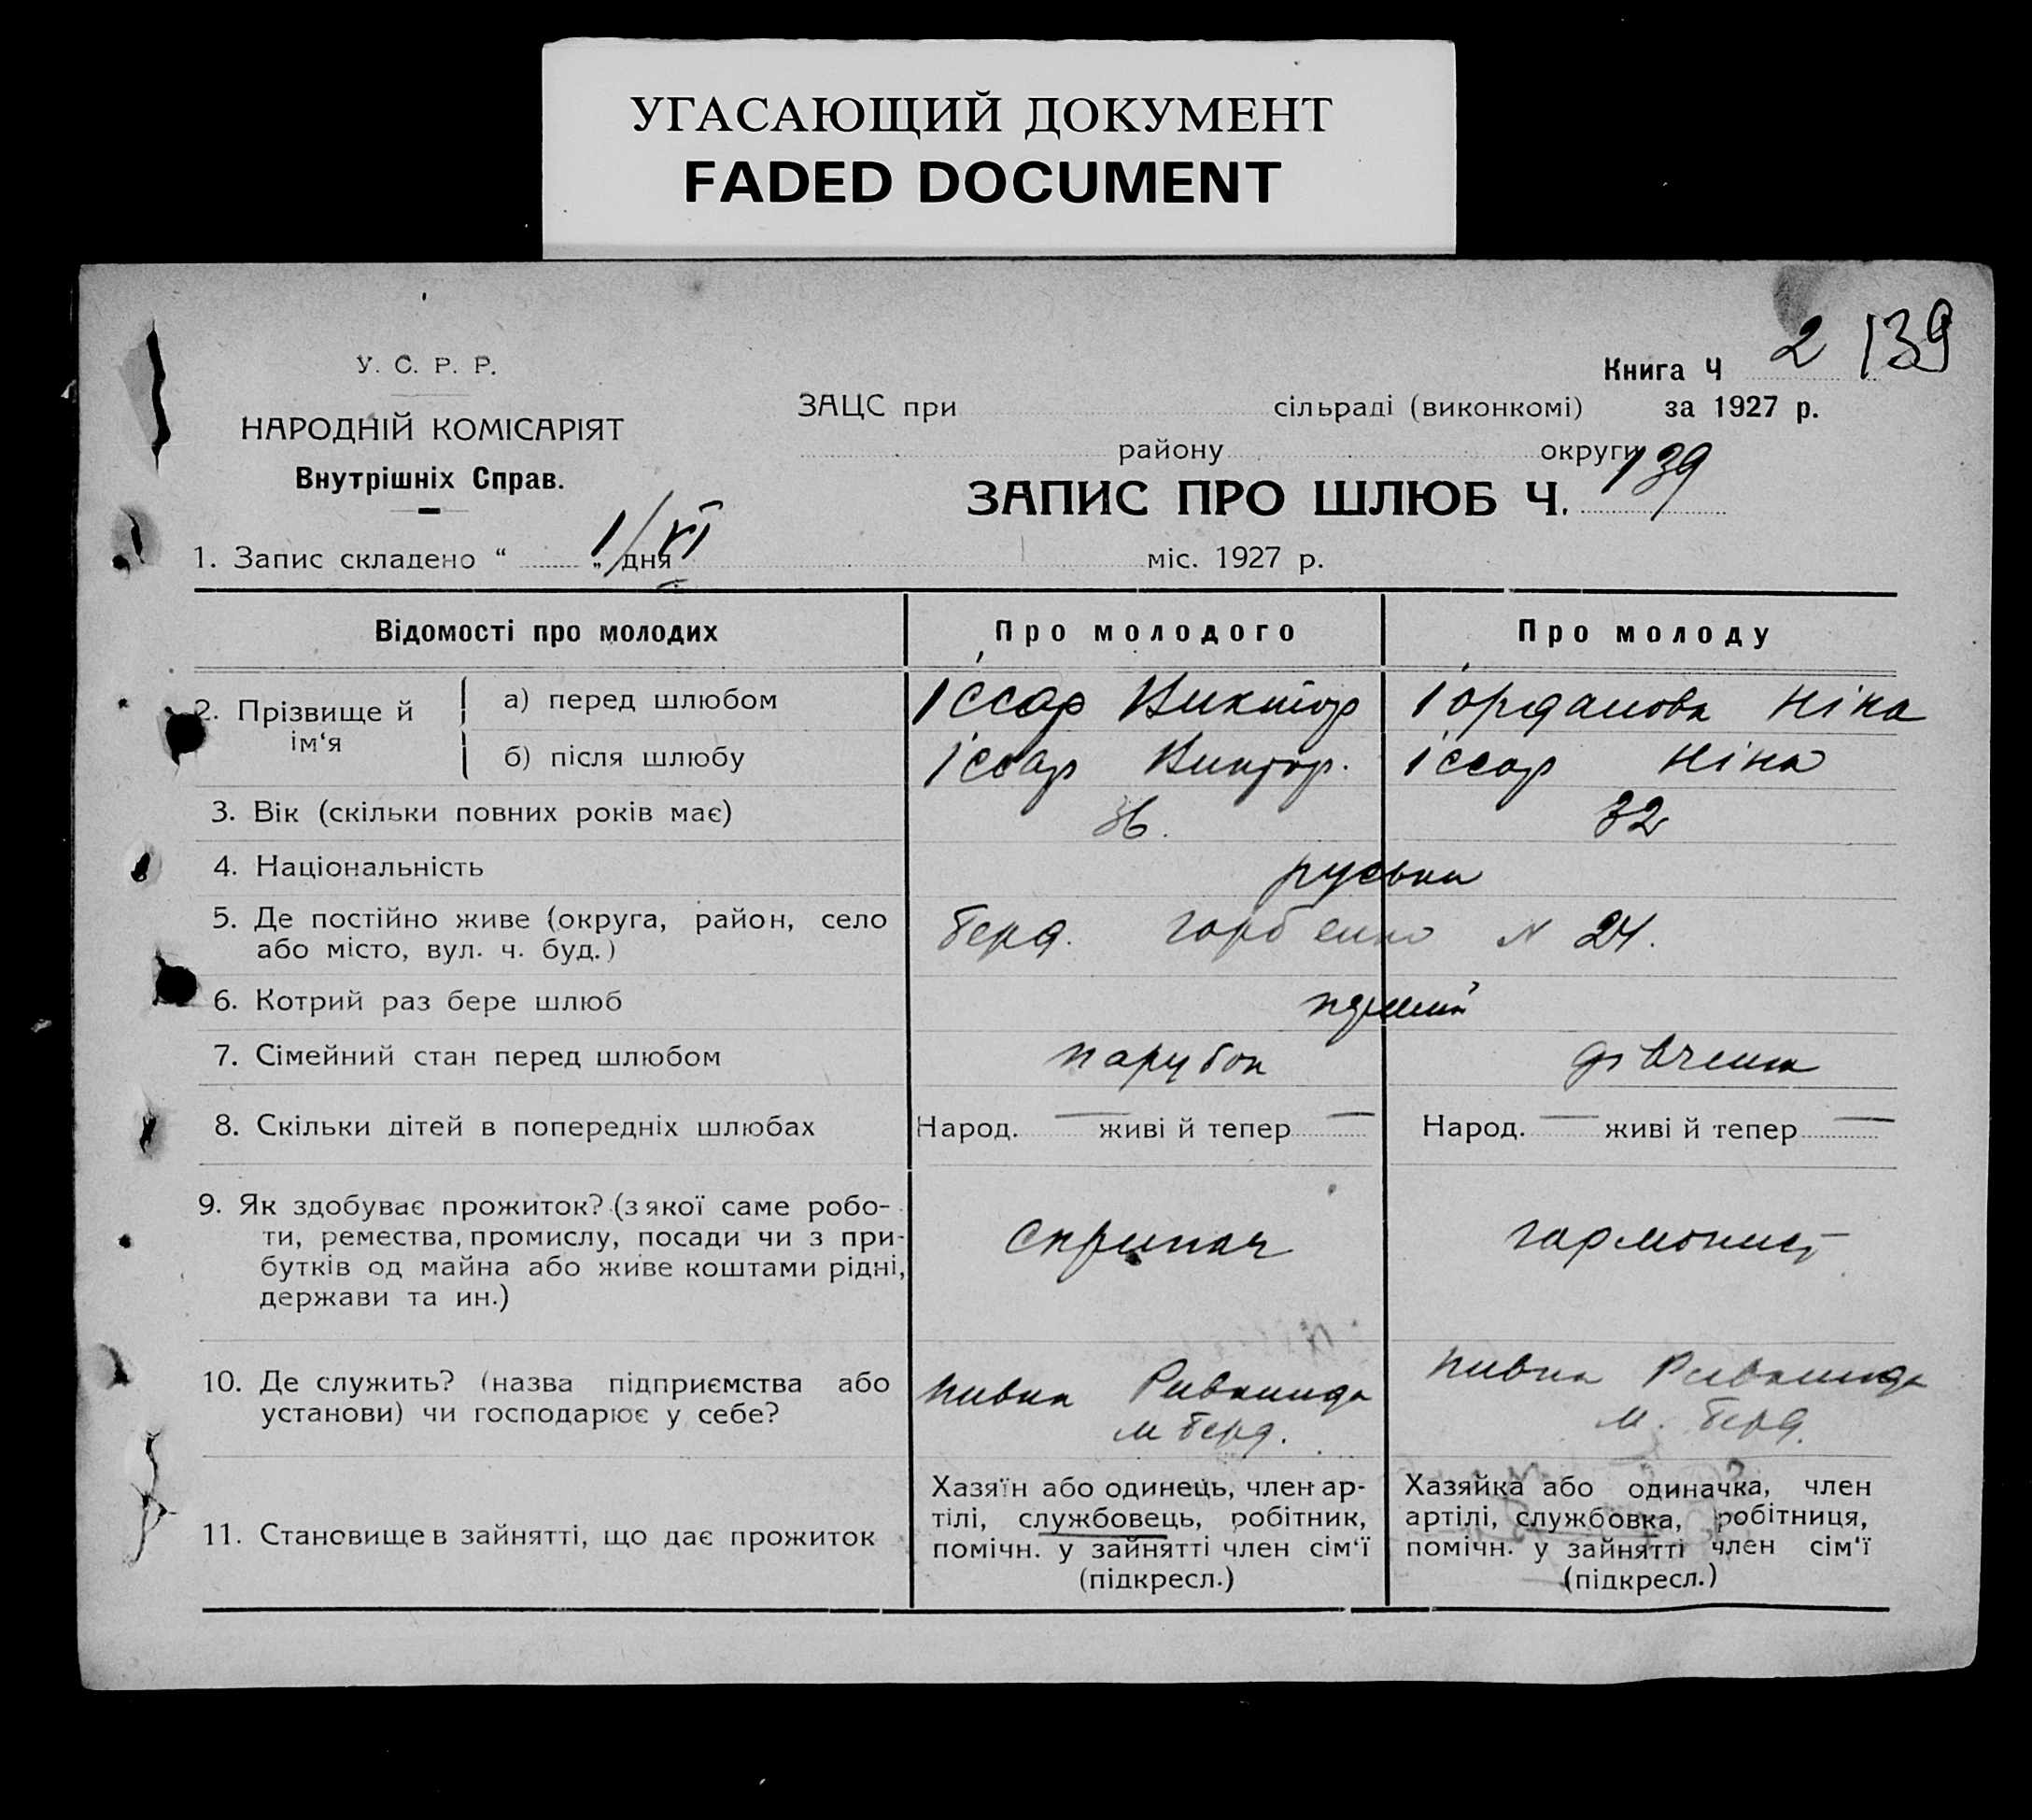 УГАСАЮЩИЙ ДОКУМЕНТ
FADED DOCUMENT
У. С. Р. Р.
НАРОДНІЙ КОМІСАРІЯТ
Внутрішніх Справ.
Книга Ч 2 139
ЗАЦС при сільраді (виконкомі) за 1927 р.
району округи
ЗАПИС ПРО ШЛЮБ Ч. 139
1. Запис складено “ 1/VI „ дня міс. 1927 р.
Відомості про молодих Про молодого Про молоду
2. Прізвище й ім‘я
а) перед шлюбом Іссар Виктор Іорданова Ніна
б) після шлюбу Іссар Виктор. Іссар Ніна
3. Вік (скільки повних років має) 36. 32
4. Національність руська
5. Де постійно живе (округа, район, село
або місто, вул. ч. буд.)
Берд. Горбенко N 24.
6. Котрий раз бере шлюб перший
7. Сімейний стан перед шлюбом парубок дівчина
8. Скільки дітей в попередніх шлюбах Народ. — живі й тепер — Народ. — живі й тепер —
9. Як здобуває прожиток? (з якої саме робо-
ти, ремества, промислу, посади чи з при-
бутків од майна або живе коштами рідні,
держави та ин.)
скрипач гармонист
10. Де служить? (назва підприємства або
установи) чи господарює у себе?
пивна
м Берд.
пивна
м. Берд.
11. Становище в зайнятті, що дає прожиток
Хазяїн або одинець, член ар-
тілі, службовець, робітник,
помічн. у зайнятті член сім‘ї
(підкресл.)
Хазяйка або одиначка, член
артілі, службовка, робітниця,
помічн. у зайнятті член сім‘ї
(підкресл.)